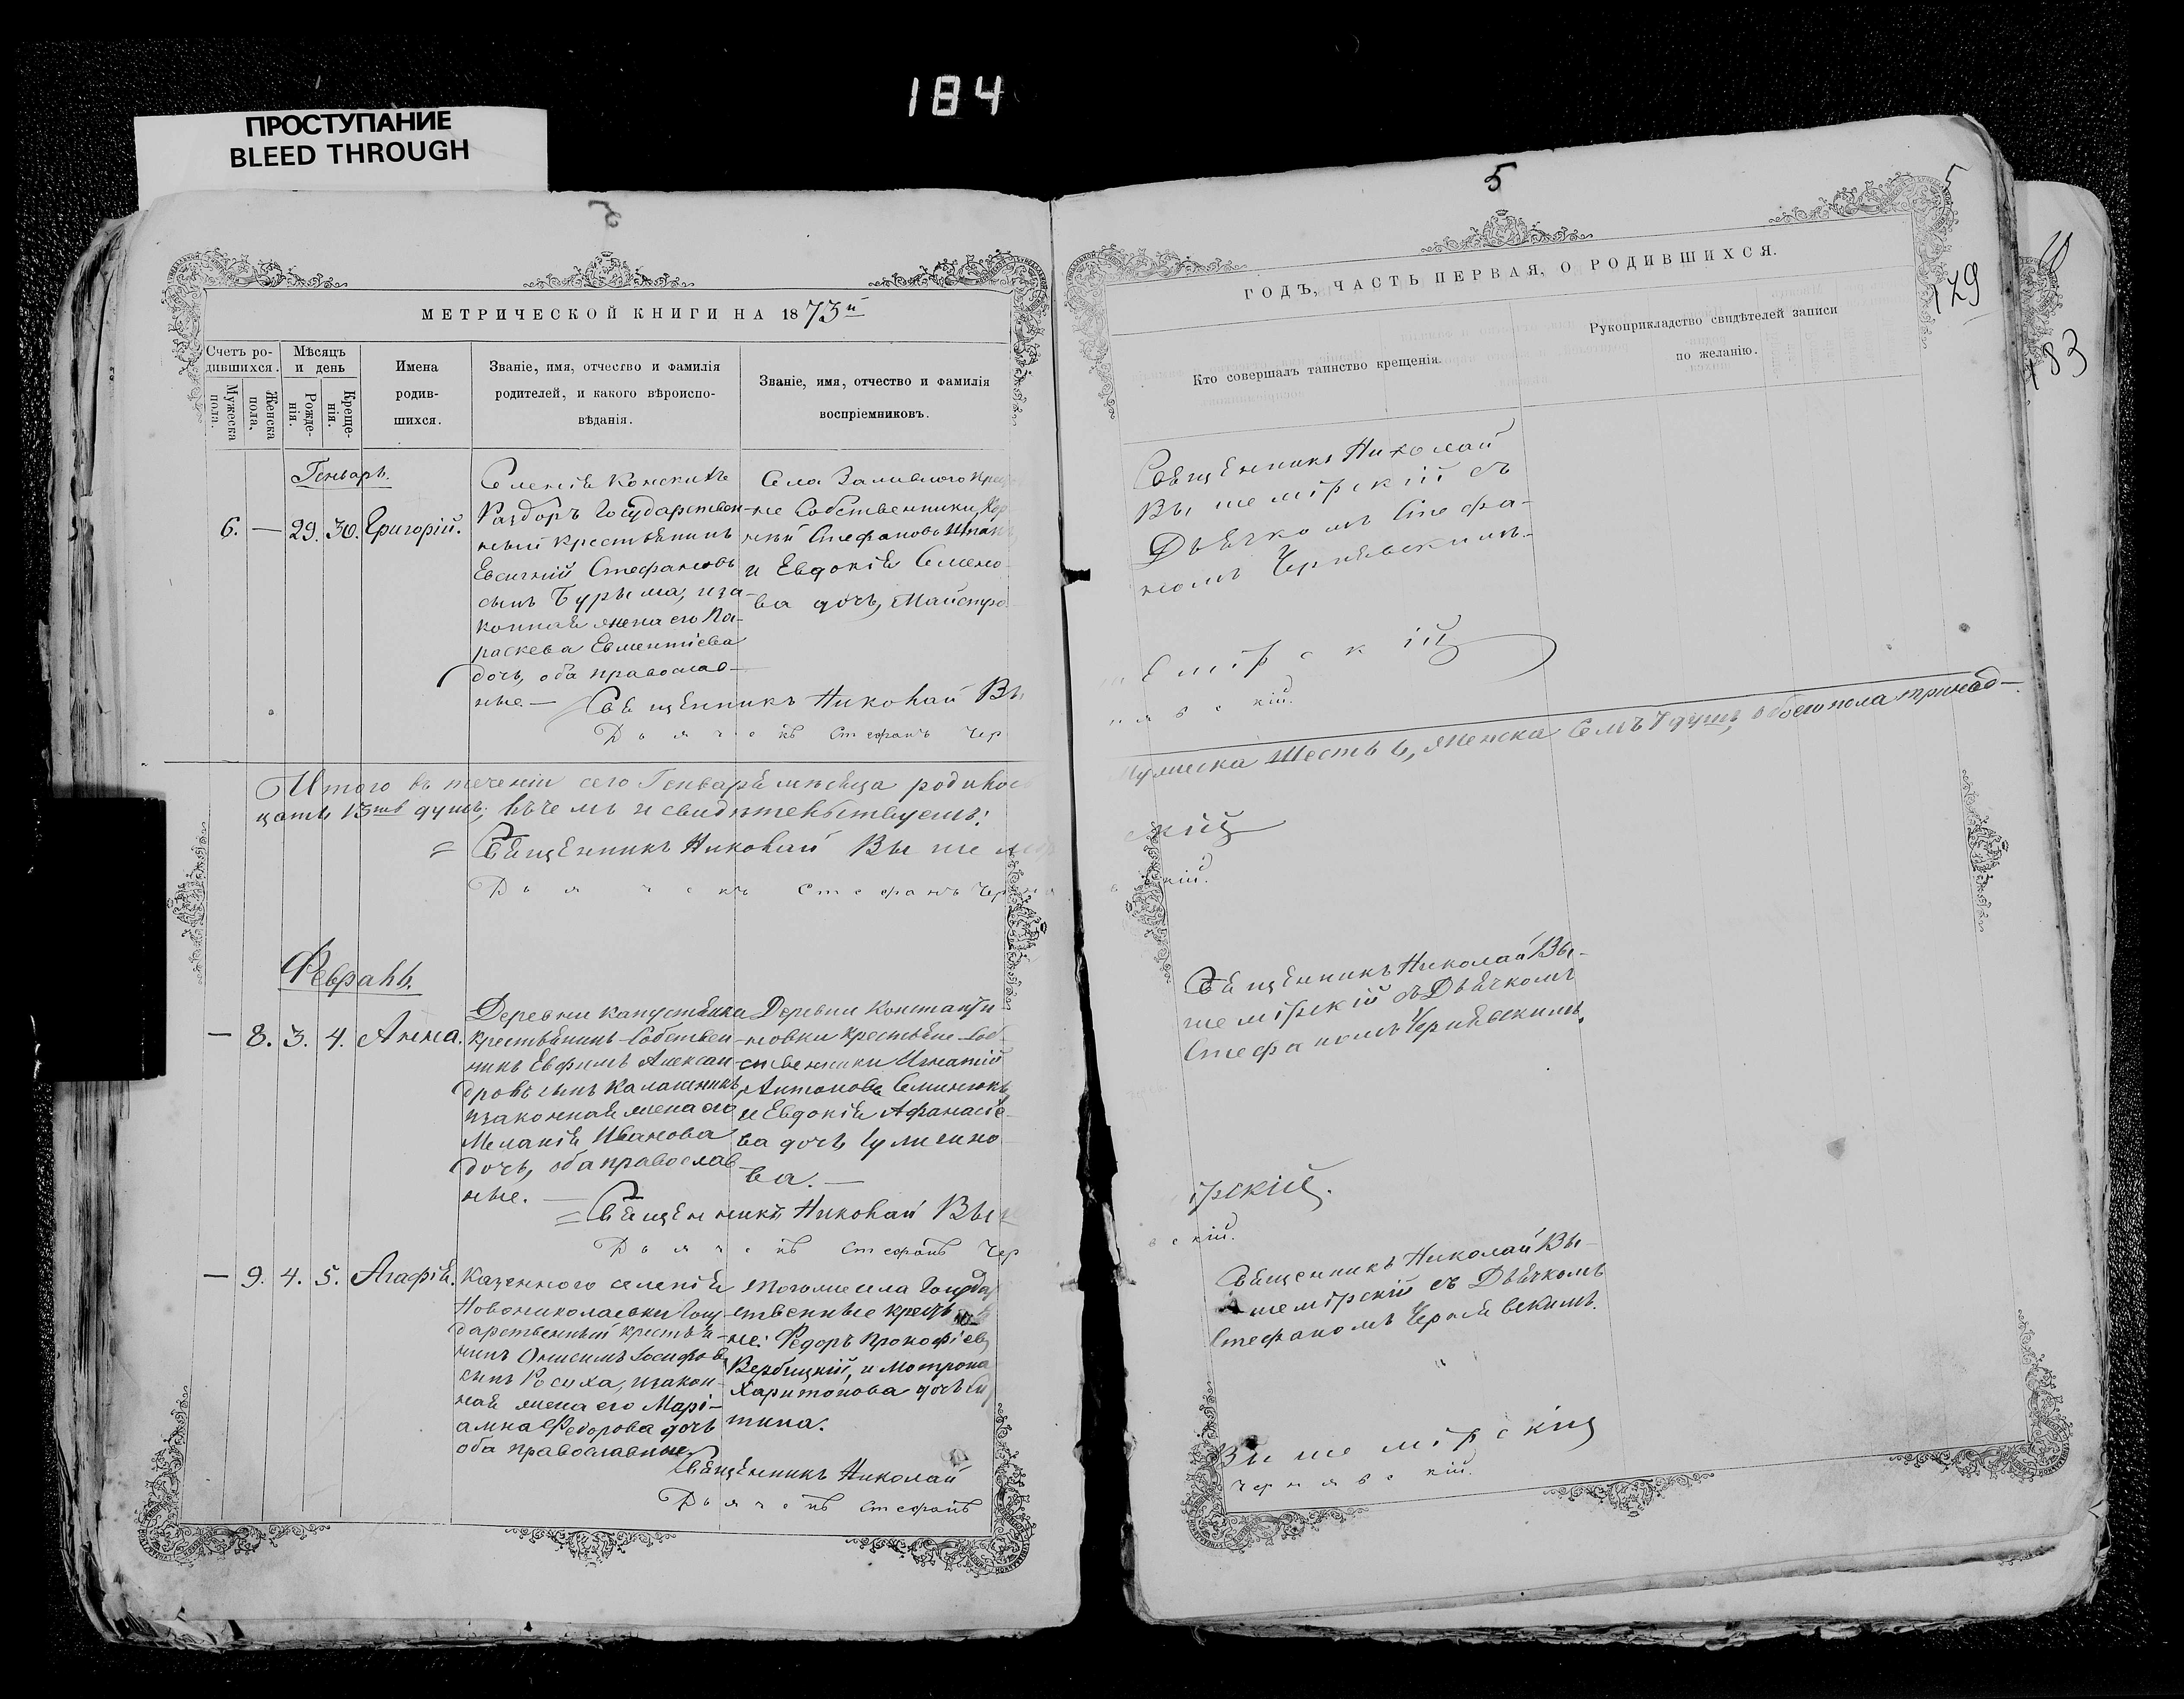 184
ПРОСТУПАНИЕ
BLEED THROUGH
МЕТРИЧЕСКОЙ КНИГИ НА 1873й
Счетъ ро-
дившихся.
Мужеска
пола.
Женска
пола.
Мѣсяцъ
и день
Рожде-
нія.
Креще-
нія.
Имена
родив-
шихся.
Званіе, имя, отчество и фамилія
родителей, и какого вѣроиспо-
вѣданія.
Званіе, имя, отчество и фамилія
воспріемниковъ.
Генварь.
6. — 29. 30. Григорій.
Селенія Конскихъ
Раздоръ Государствен-
ный крестьянинъ
Евсигній Стефановъ
сынъ Бурыма, иза-
конная жена его Па-
раскева Евментіева
дочь, оба православ-
ные. —
Села Заливного
не Собственники,
ній Стефановъ
и Евдокія Семено-
ва дочь, Майстро
Священникъ Николай Вы
Дьячекъ Стефанъ Чер
Итого въ теченіи сего Генваря мѣсяца родилось
цать 13ть душъ; въ чемъ и свидѣтельствуемъ:
= Священникъ Николай Вышемір
Дьячекъ Стефанъ Черня
Февраль.
— 8. 3. 4. Анна.
Деревни Капустянки
крестьянинъ Собствен-
никъ Евфимъ Алексан-
дровъ сынъ Калашникъ,
изаконная жена его
Меланія Иванова
дочь, оба православ-
ные. —
Деревни Константи
новки крестьяне Соб-
ственники Игнатій
Антоновъ
и Евдокія Афанасіе-
ва дочь
ва. —
= Священникъ Николай Выш
Дьячекъ Стефанъ Чер
— 9. 4. 5. Агафія.
Казенного селенія
Новониколаевки Госу-
дарственный крестья-
нинъ Онисимъ Іосифовъ
сынъ изакон-
ная жена его Марі-
амна Федорова дочь
оба православные.
Тогоже села Государ
ственные крестья
не: Федоръ Прокофіевъ
Вербицкій, и Мотрона
Харитонова дочь
тина.
Священникъ Николай
Дьячекъ Стефанъ
5
5
129
183
ГОДЪ, ЧАСТЬ ПЕРВАЯ, О РОДИВШИХСЯ.
Кто совершалъ таинство крещенія.
Рукоприкладство свидѣтелей записи
по желанію.
Священникъ Николай
Вышемірскій съ
Дьячкомъ Стефа-
номъ Чернявскимъ.
шемірскій
нявскій.
Мужеска Шесть 6, Женска Семъ 7 душъ, обоего пола тринад-
скій
вскій.
Священникъ Николай Вы-
шемірскій съ Дьячкомъ
Стефаномъ Чернявскимъ.
ірскій.
вскій.
Священникъ Николай Вы-
шемірскій съ Дьячкомъ
Стефаномъ Чернявскимъ.
Вышемірскій
Чернявскій.